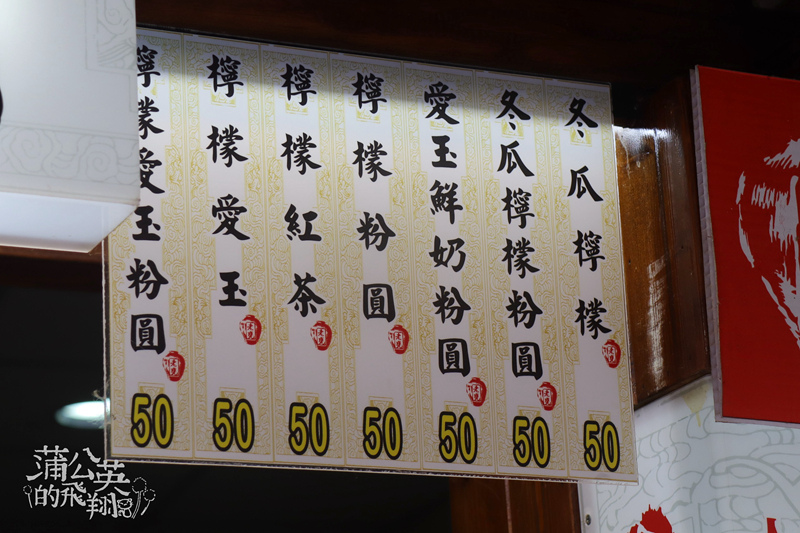 冬瓜檸檬
50
冬瓜檸檬粉圓
50
愛玉鮮奶粉圓
50
檸檬粉圓
50
檸檬紅茶
50
檸檬愛玉
50
檸檬愛玉粉圓
50
蒲公英
的飛翔